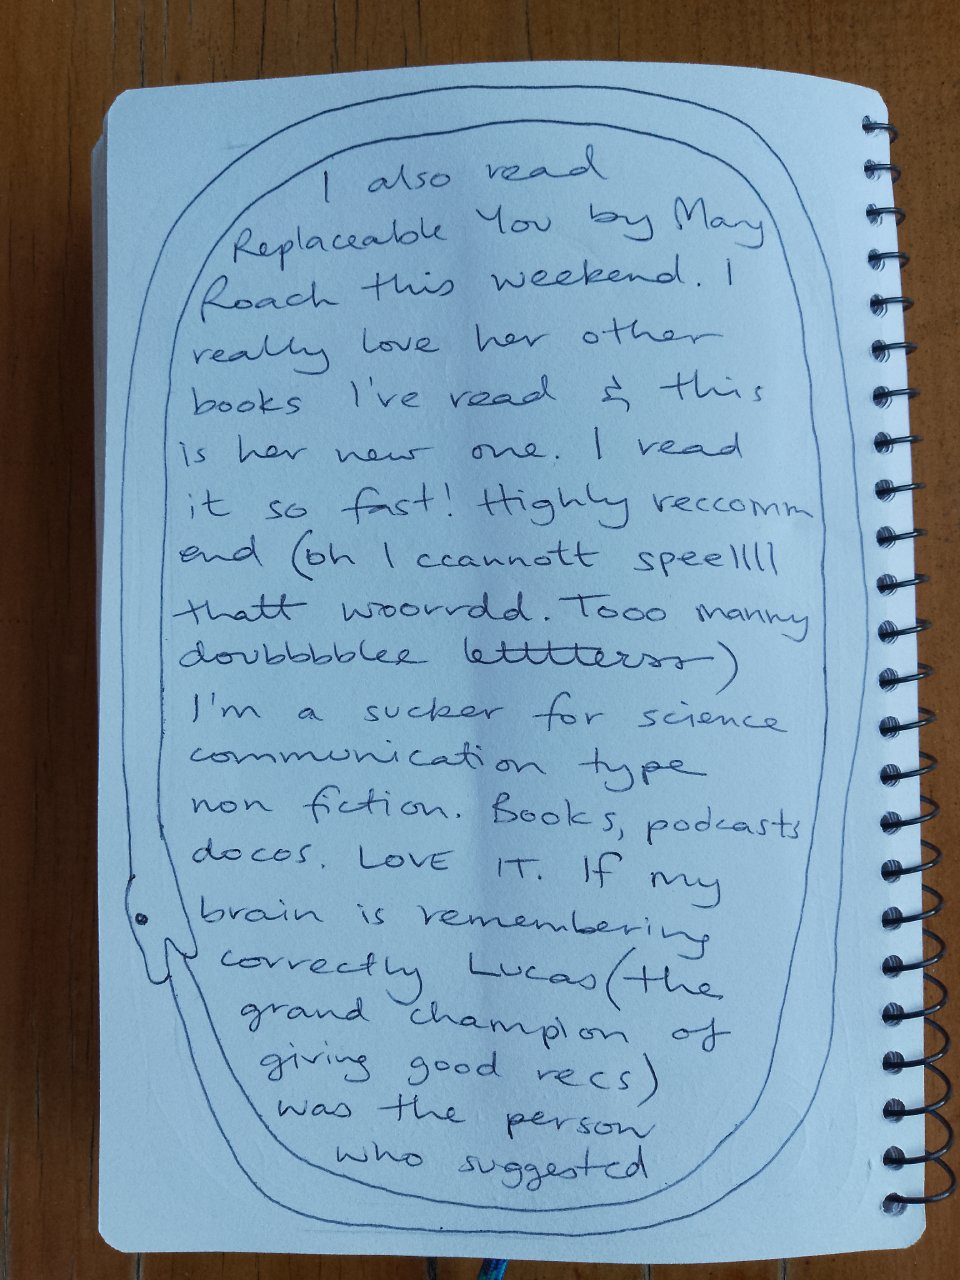 I also read
Replaceable You by Mary
Roach this weekend. I
really love her other
books I've read & this
is her new one. I read
it so fast! Highly reccomm
end (oh I ccannott speellll
thatt woorrdd. Tooo manny
doubbbblee lettttterss)
I'm a sucker for science
communication type
non fiction. Books, podcasts
docos. LOVE IT. If my
brain is remembering
correctly Lucas (the
grand champion of
giving good recs)
was the person
who suggested